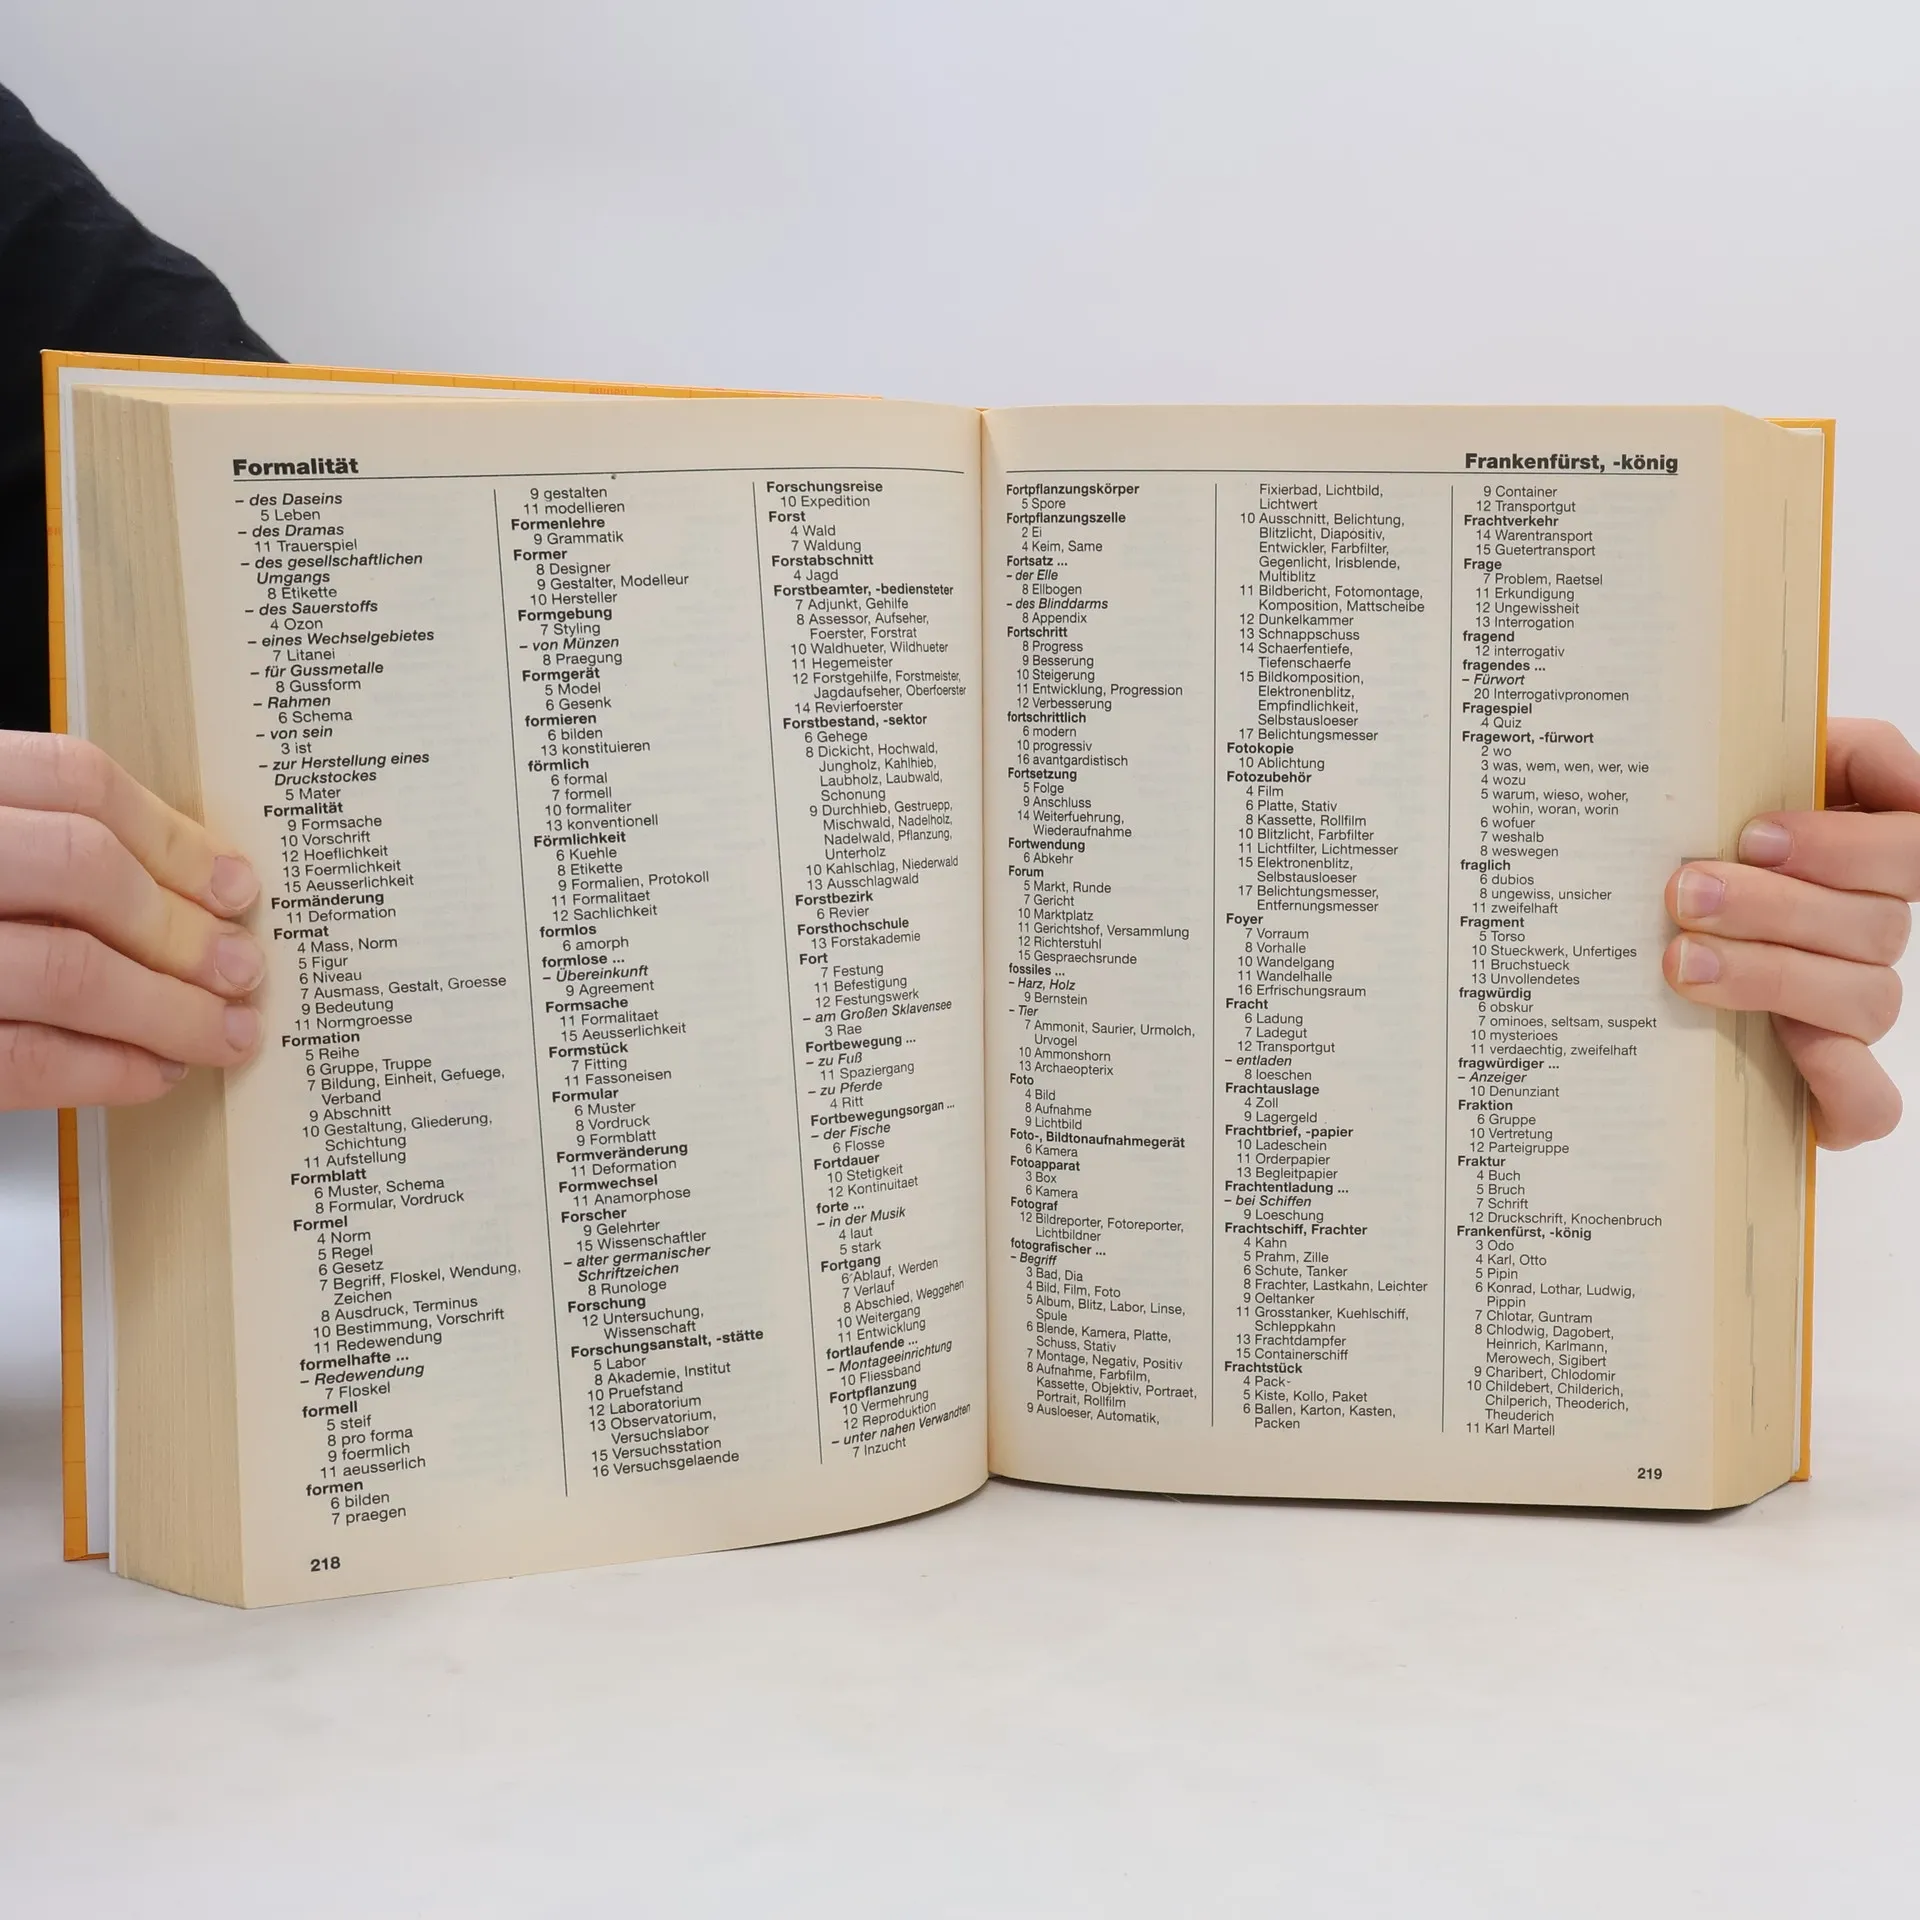 Formalität
– des Daseins
5 Leben
– des Dramas
11 Trauerspiel
– des gesellschaftlichen
Umgangs
8 Etikette
– des Sauerstoffs
4 Ozon
– eines Wechselgebietes
7 Litanei
– für Gussmetalle
8 Gussform
– Rahmen
6 Schema
– von sein
3 ist
– zur Herstellung eines
Druckstockes
5 Mater
Formalität
9 Formsache
10 Vorschrift
12 Hoeflichkeit
13 Foermlichkeit
15 Aeusserlichkeit
Formänderung
11 Deformation
Format
4 Mass, Norm
5 Figur
6 Niveau
7 Ausmass, Gestalt, Groesse
9 Bedeutung
11 Normgroesse
Formation
5 Reihe
6 Gruppe, Truppe
7 Bildung, Einheit, Gefuege,
Verband
9 Abschnitt
10 Gestaltung, Gliederung,
Schichtung
11 Aufstellung
Formblatt
6 Muster, Schema
8 Formular, Vordruck
Formel
4 Norm
5 Regel
6 Gesetz
7 Begriff, Floskel, Wendung,
Zeichen
8 Ausdruck, Terminus
10 Bestimmung, Vorschrift
11 Redewendung
formelhafte ...
– Redewendung
7 Floskel
formell
5 steif
8 pro forma
9 foermlich
11 aeusserlich
formen
6 bilden
7 praegen
9 gestalten
11 modellieren
Formenlehre
9 Grammatik
Former
8 Designer
9 Gestalter, Modelleur
10 Hersteller
Formgebung
7 Styling
– von Münzen
8 Praegung
Formgerät
5 Model
6 Gesenk
formieren
6 bilden
13 konstituieren
förmlich
6 formal
7 formell
10 formaliter
13 konventionell
Förmlichkeit
6 Kuehle
8 Etikette
9 Formalien, Protokoll
11 Formalitaet
12 Sachlichkeit
formlos
6 amorph
formlose ...
– Übereinkunft
9 Agreement
Formsache
11 Formalitaet
15 Aeusserlichkeit
Formstück
7 Fitting
11 Fassoneisen
Formular
6 Muster
8 Vordruck
9 Formblatt
Formveränderung
11 Deformation
Formwechsel
11 Anamorphose
Forscher
9 Gelehrter
15 Wissenschaftler
– alter germanischer
Schriftzeichen
8 Runologe
Forschung
12 Untersuchung,
Wissenschaft
Forschungsanstalt, -stätte
5 Labor
8 Akademie, Institut
10 Pruefstand
12 Laboratorium
13 Observatorium,
Versuchslabor
15 Versuchsstation
16 Versuchsgelaende
Forschungsreise
10 Expedition
Forst
4 Wald
7 Waldung
Forstabschnitt
4 Jagd
Forstbeamter, -bediensteter
7 Adjunkt, Gehilfe
8 Assessor, Aufseher,
Foerster, Forstrat
10 Waldhueter, Wildhueter
11 Hegemeister
12 Forstgehilfe, Forstmeister,
Jagdaufseher, Oberfoerster
14 Revierfoerster
Forstbestand, -sektor
6 Gehege
8 Dickicht, Hochwald,
Jungholz, Kahlhieb,
Laubholz, Laubwald,
Schonung
9 Durchhieb, Gestruepp,
Mischwald, Nadelholz,
Nadelwald, Pflanzung,
Unterholz
10 Kahlschlag, Niederwald
13 Ausschlagwald
Forstbezirk
6 Revier
Forsthochschule
13 Forstakademie
Fort
7 Festung
11 Befestigung
12 Festungswerk
– am Großen Sklavensee
3 Rae
Fortbewegung ...
– zu Fuß
11 Spaziergang
– zu Pferde
4 Ritt
Fortbewegungsorgan ...
– der Fische
6 Flosse
Fortdauer
10 Stetigkeit
12 Kontinuitaet
forte ...
– in der Musik
4 laut
5 stark
Fortgang
6 Ablauf, Werden
7 Verlauf
8 Abschied, Weggehen
10 Weitergang
11 Entwicklung
fortlaufende ...
– Montageeinrichtung
10 Fliessband
Fortpflanzung
10 Vermehrung
12 Reproduktion
– unter nahen Verwandten
7 Inzucht
218
Frankenfürst, -könig
Fortpflanzungskörper
5 Spore
Fortpflanzungszelle
2 Ei
4 Keim, Same
Fortsatz ...
– der Elle
8 Ellbogen
– des Blinddarms
8 Appendix
Fortschritt
8 Progress
9 Besserung
10 Steigerung
11 Entwicklung, Progression
12 Verbesserung
fortschrittlich
6 modern
10 progressiv
16 avantgardistisch
Fortsetzung
5 Folge
9 Anschluss
14 Weiterfuehrung,
Wiederaufnahme
Fortwendung
6 Abkehr
Forum
5 Markt, Runde
7 Gericht
10 Marktplatz
11 Gerichtshof, Versammlung
12 Richterstuhl
15 Gespraechsrunde
fossiles ...
– Harz, Holz
9 Bernstein
– Tier
7 Ammonit, Saurier, Urmolch,
Urvogel
10 Ammonshorn
13 Archaeopterix
Foto
4 Bild
8 Aufnahme
9 Lichtbild
Foto-, Bildtonaufnahmegerät
6 Kamera
Fotoapparat
3 Box
6 Kamera
Fotograf
12 Bildreporter, Fotoreporter,
Lichtbildner
fotografischer ...
– Begriff
3 Bad, Dia
4 Bild, Film, Foto
5 Album, Blitz, Labor, Linse,
Spule
6 Blende, Kamera, Platte,
Schuss, Stativ
7 Montage, Negativ, Positiv
8 Aufnahme, Farbfilm,
Kassette, Objektiv, Portraet,
Portrait, Rollfilm
9 Ausloeser, Automatik,
Fixierbad, Lichtbild,
Lichtwert
10 Ausschnitt, Belichtung,
Blitzlicht, Diapositiv,
Entwickler, Farbfilter,
Gegenlicht, Irisblende,
Multiblitz
11 Bildbericht, Fotomontage,
Komposition, Mattscheibe
12 Dunkelkammer
13 Schnappschuss
14 Schaerfentiefe,
Tiefenschaerfe
15 Bildkomposition,
Elektronenblitz,
Empfindlichkeit,
Selbstausloeser
17 Belichtungsmesser
Fotokopie
10 Ablichtung
Fotozubehör
4 Film
6 Platte, Stativ
8 Kassette, Rollfilm
10 Blitzlicht, Farbfilter
11 Lichtfilter, Lichtmesser
15 Elektronenblitz,
Selbstausloeser
17 Belichtungsmesser,
Entfernungsmesser
Foyer
7 Vorraum
8 Vorhalle
10 Wandelgang
11 Wandelhalle
16 Erfrischungsraum
Fracht
6 Ladung
7 Ladegut
12 Transportgut
– entladen
8 loeschen
Frachtauslage
4 Zoll
9 Lagergeld
Frachtbrief, -papier
10 Ladeschein
11 Orderpapier
13 Begleitpapier
Frachtentladung ...
– bei Schiffen
9 Loeschung
Frachtschiff, Frachter
4 Kahn
5 Prahm, Zille
6 Schute, Tanker
8 Frachter, Lastkahn, Leichter
9 Oeltanker
11 Grosstanker, Kuehlschiff,
Schleppkahn
13 Frachtdampfer
15 Containerschiff
Frachtstück
4 Pack-
5 Kiste, Kollo, Paket
6 Ballen, Karton, Kasten,
Packen
9 Container
12 Transportgut
Frachtverkehr
14 Warentransport
15 Guetertransport
Frage
7 Problem, Raetsel
11 Erkundigung
12 Ungewissheit
13 Interrogation
fragend
12 interrogativ
fragendes ...
– Fürwort
20 Interrogativpronomen
Fragespiel
4 Quiz
Fragewort, -fürwort
2 wo
3 was, wem, wen, wer, wie
4 wozu
5 warum, wieso, woher,
wohin, woran, worin
6 wofuer
7 weshalb
8 weswegen
fraglich
6 dubios
8 ungewiss, unsicher
11 zweifelhaft
Fragment
5 Torso
10 Stueckwerk, Unfertiges
11 Bruchstueck
13 Unvollendetes
fragwürdig
6 obskur
7 ominoes, seltsam, suspekt
10 mysterioes
11 verdaechtig, zweifelhaft
fragwürdiger ...
– Anzeiger
10 Denunziant
Fraktion
6 Gruppe
10 Vertretung
12 Parteigruppe
Fraktur
4 Buch
5 Bruch
7 Schrift
12 Druckschrift, Knochenbruch
Frankenfürst, -könig
3 Odo
4 Karl, Otto
5 Pipin
6 Konrad, Lothar, Ludwig,
Pippin
7 Chlotar, Guntram
8 Chlodwig, Dagobert,
Heinrich, Karlmann,
Merowech, Sigibert
9 Charibert, Chlodomir
10 Childebert, Childerich,
Chilperich, Theoderich,
Theuderich
11 Karl Martell
219